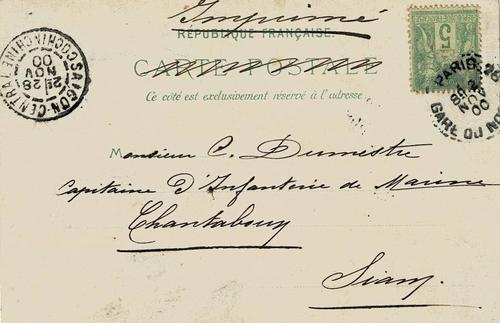 Imprimé
RÉPUBLIQUE FRANÇAISE.
CARTE POSTALE
Ce côté est exclusivement réservé à l'adresse
Monsieur C. Dumestre
Capitaine D'Infanterie de Marine
Chantabouy
Siam
SAIGON-CENTRAL COCHINCHINE
28
NOV
00
5
PARIS
NOV
00
GARE DU NORD